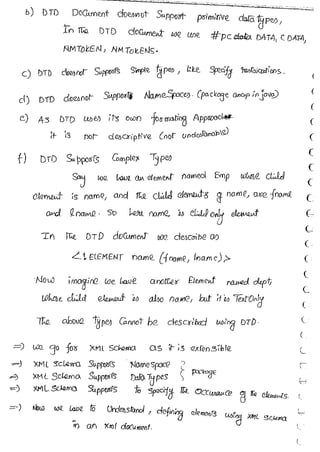 b) DTD Document doesnot Support primitive data types,
In the DTD document we use #pcdata DATA, CDATA,
NMTOKEN, NMTOKENS.
c) DTD doesnot Supports Simple types, like Specify restrictions.
d) DTD doesnot Supports NameSpaces. (package group in java)
e) AS DTD uses its own formating Approach
it is not descriptive (not understandable)
f) DTD Supports Complex Types
Say we have an element named Emp whose child
element is name, and the child elements of name, are fname
and lname. So here name is child only element
In the DTD document we describe as
<! ELEMENT name (fname, lname)>
Now imagine we have another Element named dept,
whose child element is also name, but it is Text Only
The above types cannot be described using DTD.
=) We go for XML Schema as it is extensible
=) XML Schema Supports NameSpace } package
=) XML Schema Supports Data Types
=) XML Schema Supports to Specify the Occurance of the elements.
=) Now we have to Understand, defining elements using XML Schema
in an Xml document.